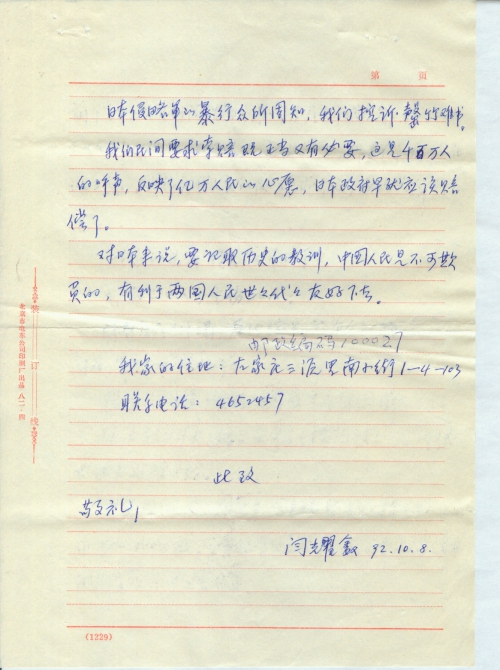 第 页
日本侵略军的暴行众所周知，我们控诉罄竹难书。
我们民间要求索赔既正当又有必要，这是千百万人
的呼声，反映了亿万人民的心愿，日本政府早就应该赔
偿了。
对日本来说，要记取历史的教训，中国人民是不可欺
负的，有利于两国人民世世代代友好下去。
邮政编码100027
我家的住地：左家庄三源里南小街1-4-103
联系电话：4652457
此致
敬礼！
闫耀鑫 92.10.8.
装订线
(1229)